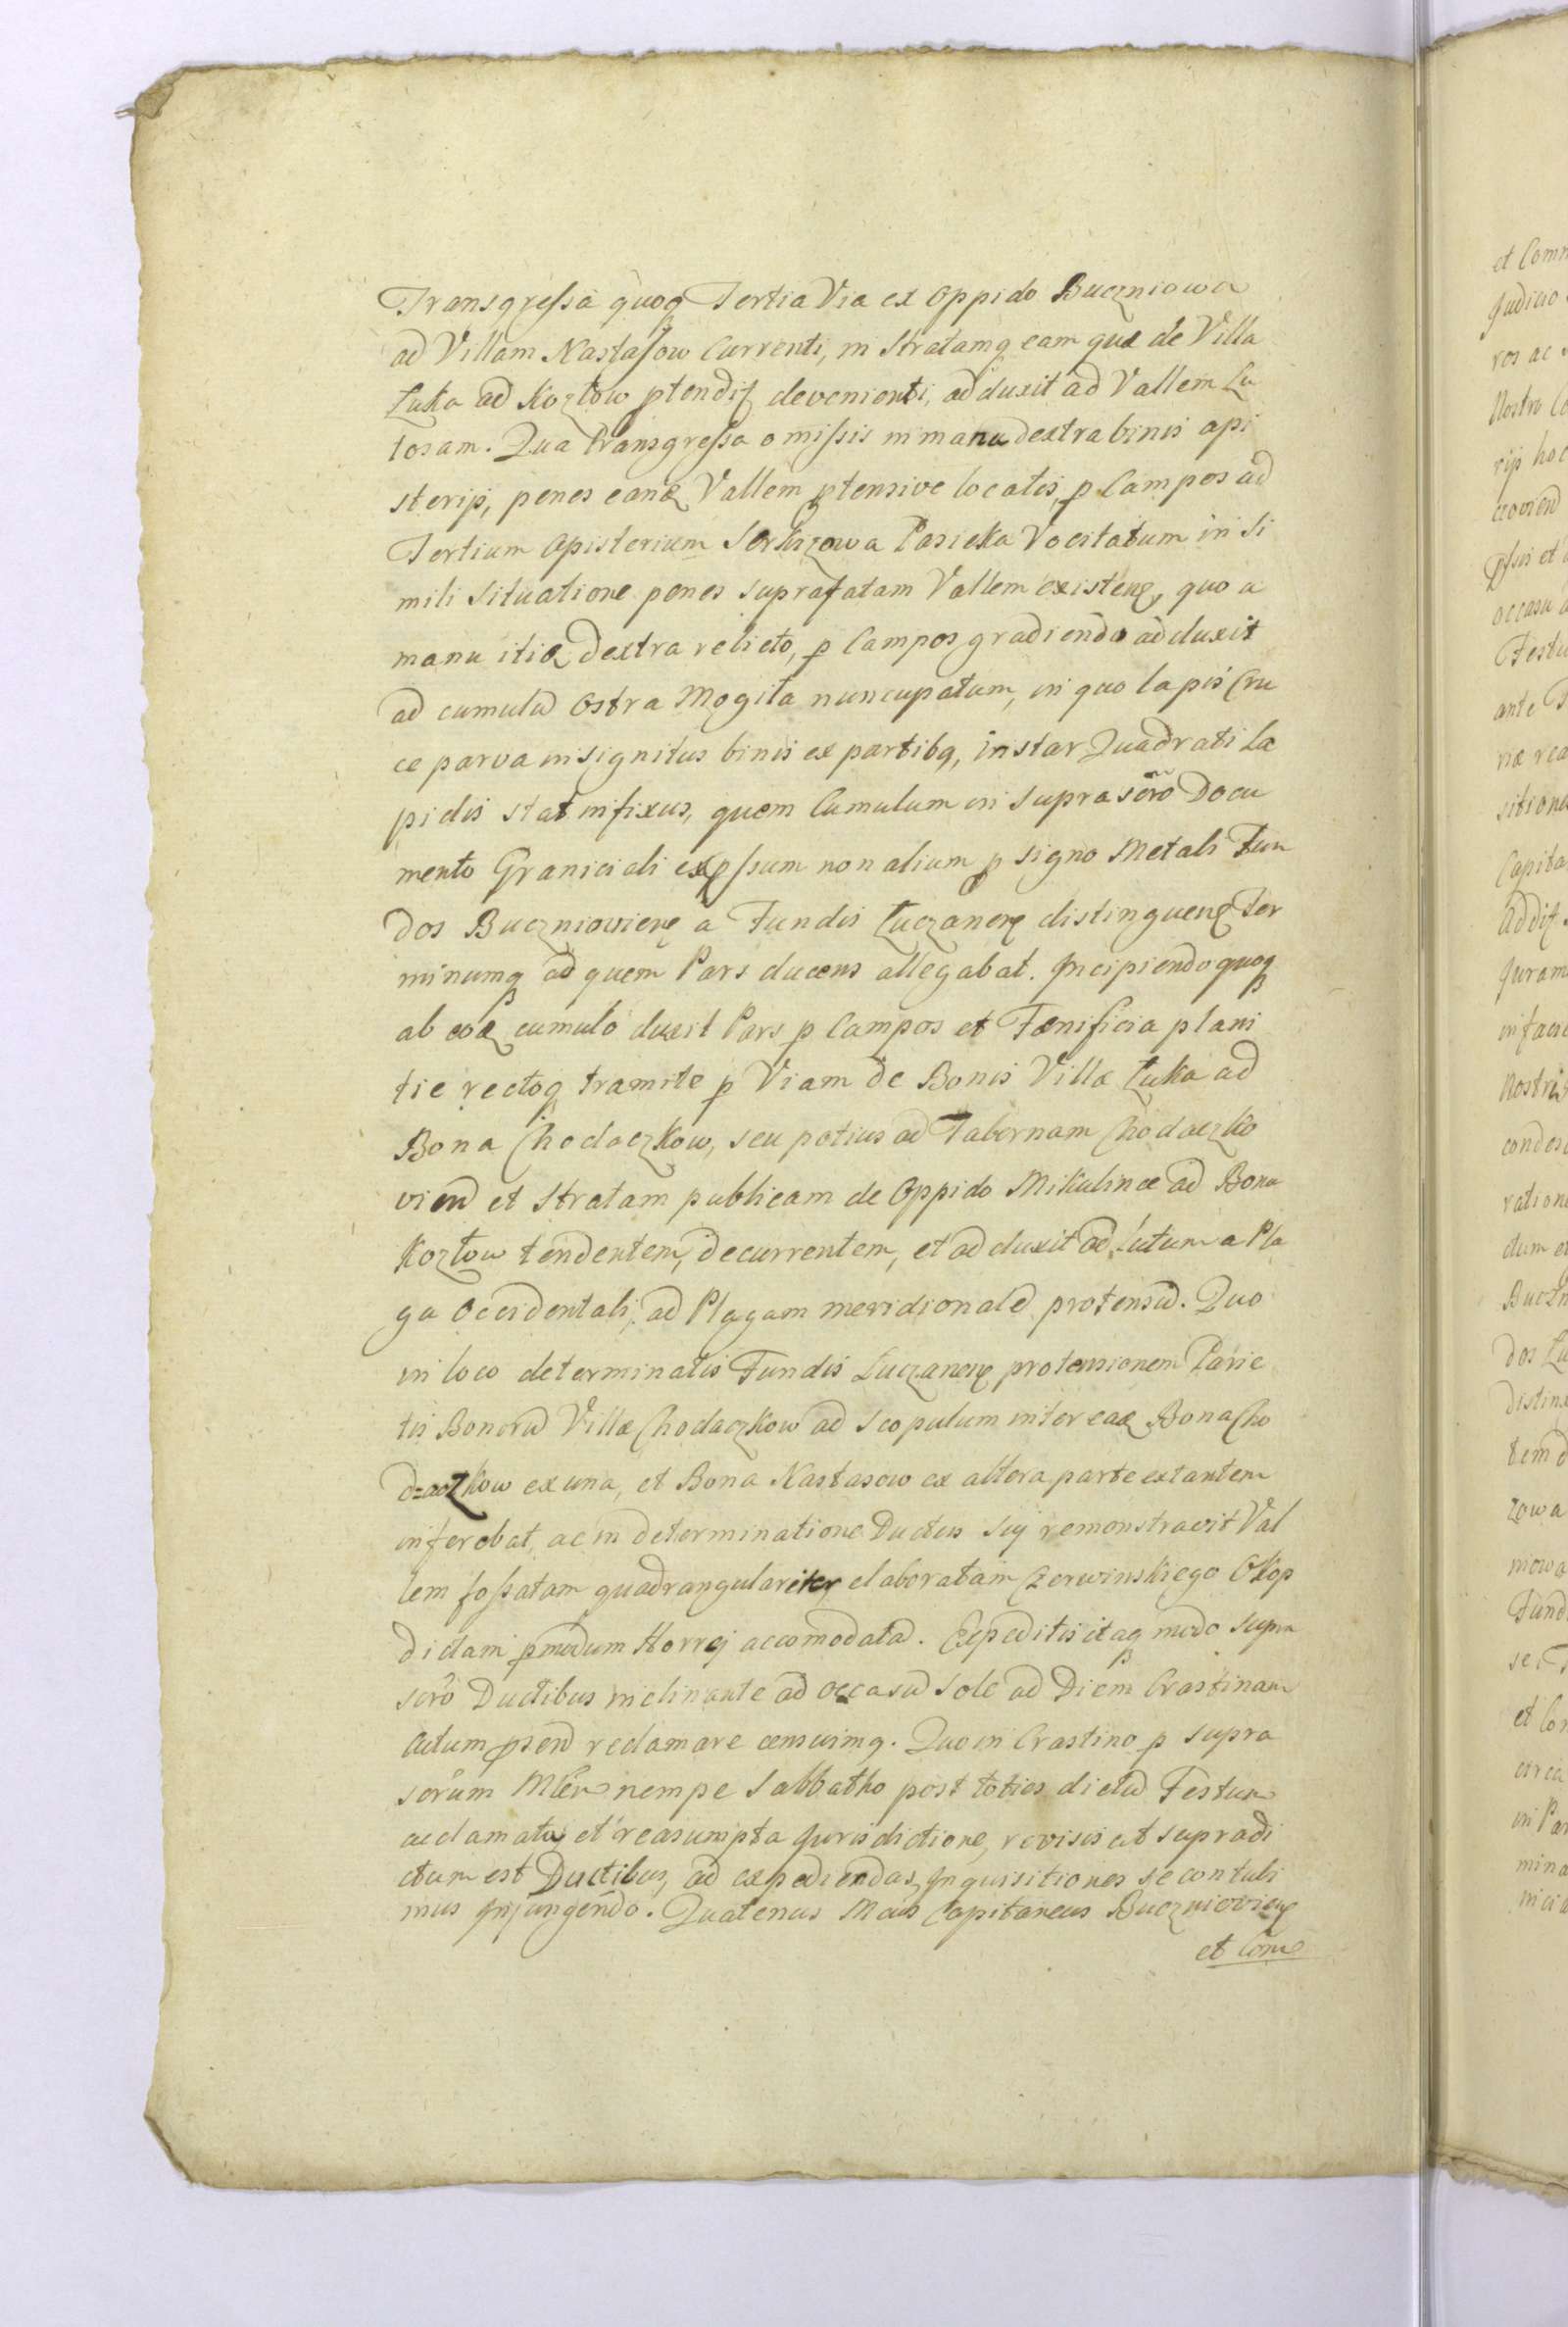 Transgressa quoq Tertia Via ex Oppido Buczniowa
ad Villam Nastasow Currenti, in Stratamq eam quæ de Villa
Łuka ad Kozłow ptendit devenienti, adduxit ad Vallem Lu
tosam. Qua transgressa omissis in manu dextra binis api
sterijs, penes eandę Vallem ptensive locatis, p Campos ad
Tertium Apisterium Serkizowa Pasieka Vocitatum in Si
mili Situatione penes suprafatam Vallem existenę, quo a
manu itidę dextra relicto, p Campos gradiendo adduxit
ad cumulũ Ostra Mogiła nuncupatum, in quo lapis Cru
ce parva insignitus binis ex partibq, instar Quadrati La
pidis stat infixus, quem Cumulum in suprascro Docu
mento Graniciali expssum non alium p signo Metali Fun
dos Bucznioviene a Fundis Łuczanenę distinguenę Ter
minumq ad quem Pars ducens allegabat. Incipiendo quoq
ab eodę cumulo duxit Pars p Campos et Fænificia plani
tie rectoq tramite p Viam de Bonis Villæ Łuka ad
Bona Chodaczkow, seu potius ad Tabernam Chodaczko
viend et Stratam publicam de Oppido Mikulince ad Bona
Kozłow tendentem, decurrentem, et adduxit ad Lutum a Pla
ga Occidentali, ad Plagam meridionalẽ protensũ. Quo
in loco determinatis Fundis Łuczanenę protensionem Parie
tis Bonorũ Villæ Chodaczkow ad Scopulum inter eadę Bona Cho
daczkow ex una, et Bona Nastasow ex altera parte extantem
inferebat, ac in determinatione Ductus sui remonstravit Val
lem fossatam quadrangulariter elaboratam Czerwinskiego Okop
dictam pmodum Horrei accomodatã. Expeditis itaq modo supra
scro Ductibus inclinante ad occasũ Sole ad Diem Crastinam
Actum psen reclamare censuimq. Quo in Crastino p supra
scrum Mlẽr nempe Sabbatho post toties dictũ Festum
acclamata et reasumpta Jurisdictione, revisis ut supradi
ctum est Ductibus, ad expediendas Inquisitiones se contuli
mus Injungendo. Quatenus Mcus Capitaneus Bucznioviene
et Com